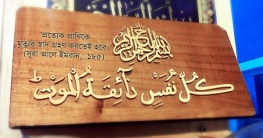 بسم الله الرحمن الرحيم
প্রত্যেক প্রাণিকে
মৃত্যুর স্বাদ গ্রহণ করতেই হবে।
(সুরা আলে ইমরান, ১৮৫)
كُلُّ نَفْسٍ ذَآئِقَةُ الْمَوْتِ